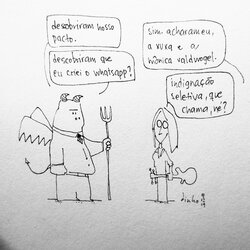 descobriram nosso
pacto.
descobriram que
eu criei o whatsapp?
sim. acharam eu,
a xuxa e a
mônica valdvogel.
indignação
seletiva, que
chama, né?
dinho